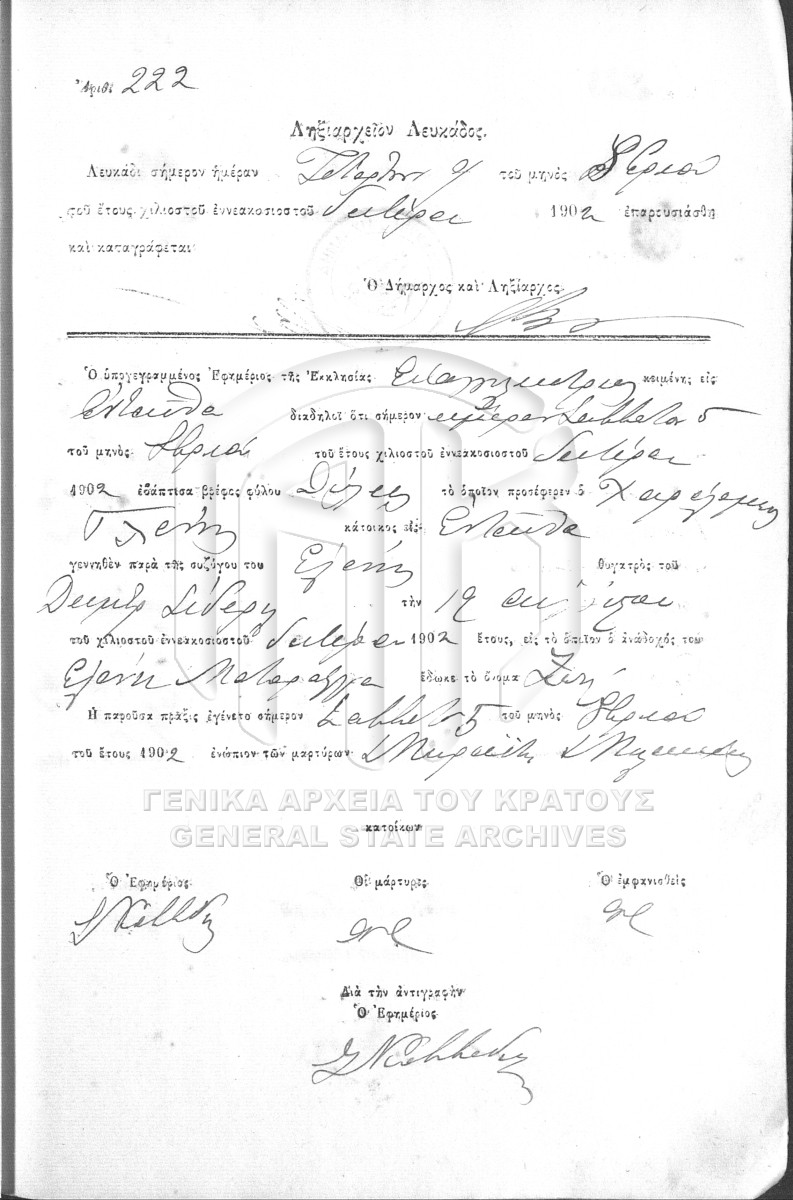 Ἀριθ. 222
Ληξιαρχεῖον Λευκάδος.
Λευκάδι σήμερον ἡμέραν Τετάρτην 9 τοῦ μηνὸς 8βρίου
τοῦ ἔτους χιλιοστοῦ ἐννεακοσιοστοῦ δευτέρου 1902 ἐπαρουσιάσθη
καὶ καταγράφεται
Ὁ Δήμαρχος καὶ Ληξίαρχος
Ὁ ὑπογεγραμμένος Ἐφημέριος τῆς Ἐκκλησίας Εὐαγγελιστρίας κειμένης εἰς
ἐνταῦθα διαδηλοῖ ὅτι σήμερον ἡμέραν Σάββατον 5
τοῦ μηνὸς 8βρίου τοῦ ἔτους χιλιοστοῦ ἐννεακοσιοστοῦ δευτέρου
1902 ἐβάπτισα βρέφος φύλου θήλεος τὸ ὁποῖον προσέφερεν ὁ Χαράλαμπος
κάτοικος εἰς ἐνταῦθα
γεννηθὲν παρὰ τῆς συζύγου του Ἑλένης θυγατρὸς τοῦ
Δημητρ Σίδερη τὴν 12 αὐγούστου
τοῦ χιλιοστοῦ ἐννεακοσιοστοῦ δευτέρου 1902 ἔτους, εἰς τὸ ὁποῖον ὁ ἀνάδοχός του
Ἑλένη Ματαράγγα ἔδωκε τὸ ὄνομα Ζωή
Ἡ παροῦσα πρᾶξις ἐγένετο σήμερον Σάββατον 5 τοῦ μηνὸς 8βρίου
τοῦ ἔτους 1902 ἐνώπιον τῶν μαρτύρων
ΓΕΝΙΚΑ ΑΡΧΕΙΑ ΤΟΥ ΚΡΑΤΟΥΣ
κατοίκων
GENERAL STATE ARCHIVES
Ὁ Ἐφημέριος Οἱ μάρτυρες Ὁ ἐμφανισθείς
Διὰ τὴν ἀντιγραφὴν
Ὁ Ἐφημέριος